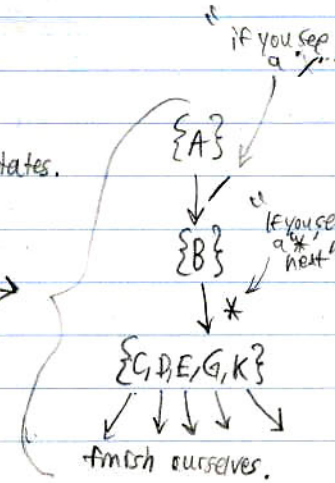 "if you see
a "/"
{A}
tates.
/
{B}
"If you see
a *,
next"
*
{C, D, E, G, K}
finish ourselves.